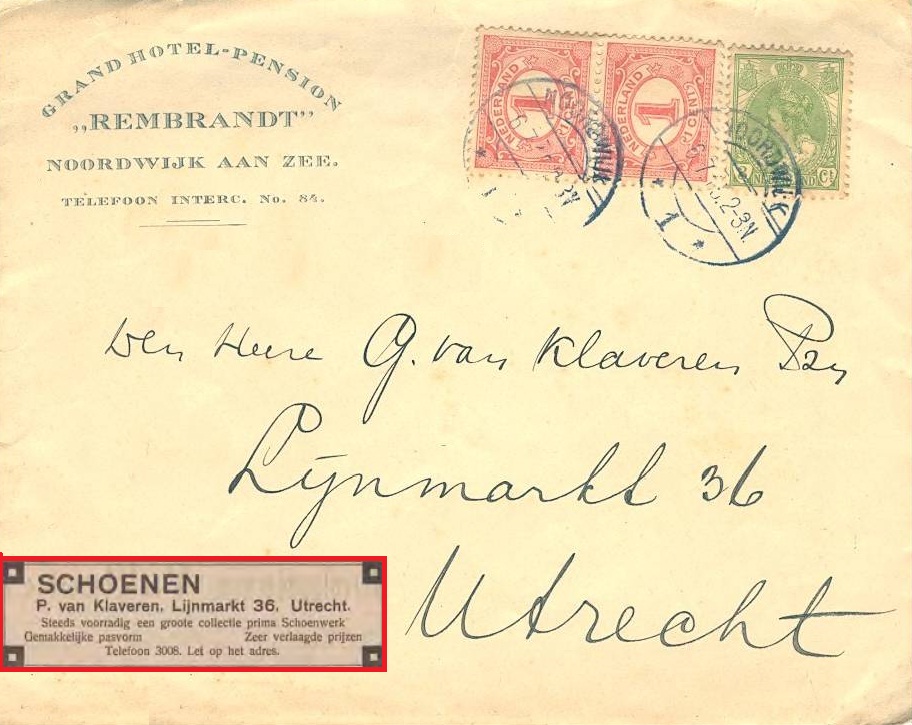 GRAND HOTEL-PENSION
„REMBRANDT”
NOORDWIJK AAN ZEE.
TELEFOON INTERC. No. 84.
1 1
NEDERLAND NEDERLAND
NOORDWIJK
NOORDWIJK
2-3N
1
Den Heere G. van Klaveren Pzn
Lijnmarkt 36
Utrecht
SCHOENEN
P. van Klaveren, Lijnmarkt 36, Utrecht.
Steeds voorradig een groote collectie prima Schoenwerk
Gemakkelijke pasvorm Zeer verlaagde prijzen
Telefoon 3008. Let op het adres.